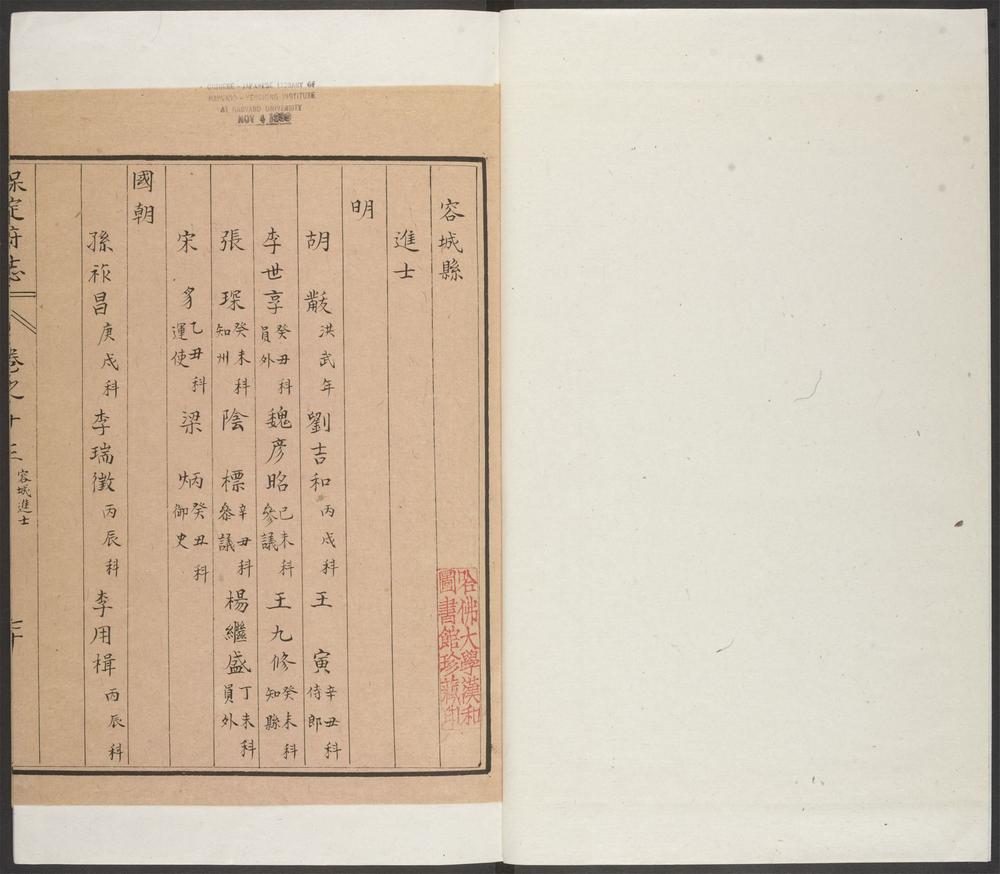 CHINESE - JAPANESE LIBRARY OF
HARVARD - YENCHING INSTITUTE
AT HARVARD UNIVERSITY
NOV 4 1939
容城縣
進士
明
胡 黻 洪武年 劉吉和 丙戌科 王 寅 辛丑科 侍郎
李世享 癸丑科 員外 魏彥昭 己未科 參議 王九修 癸未科 知縣
張 琛 癸未科 知州 陰 標 辛丑科 叅議 楊繼盛 丁未科 員外
宋 豸 乙丑科 運使 梁 炳 癸丑科 御史
國朝
孫祚昌 庚戌科 李瑞徵 丙辰科 李用楫 丙辰科
保定府志 卷之十三 容城進士 七十
哈佛大學漢和
圖書館珍藏印